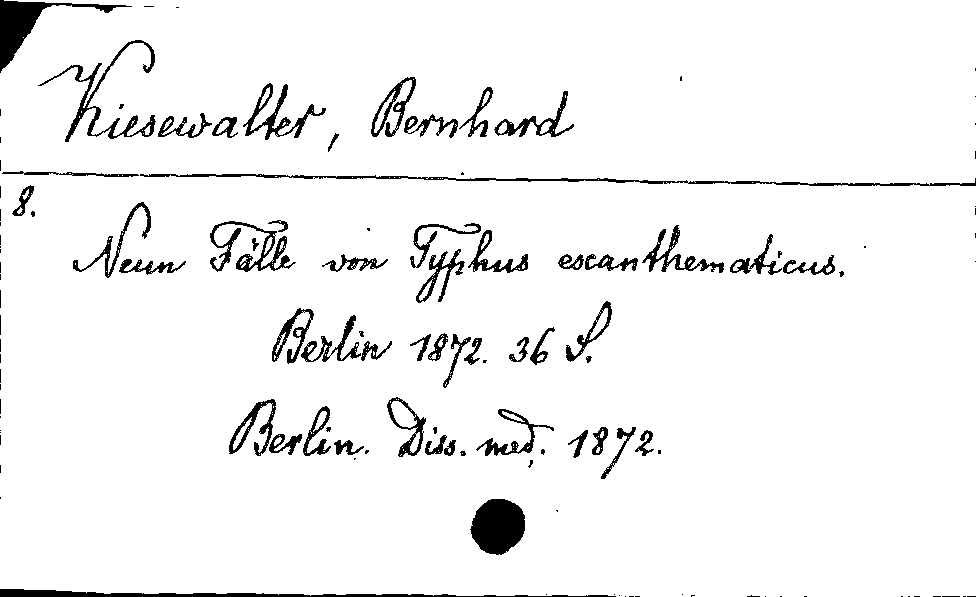 Kiesewalter, Bernhard
8.
Neun Fälle von Typhus exanthematicus.
Berlin 1872. 36 S.
Berlin. Diss. med. 1872.